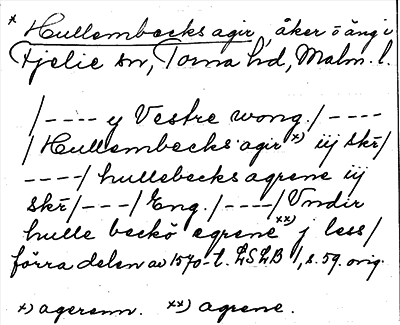 x Hullembecks agir, åker o äng i
Fjelie sn, Torna hd, Malm. l.
/---- y Vestre wong. /----
/ Hullembecks agir x) iij skr/
----/ hullebecks agrene iij
skr/---/ Eng. /----/ Vndir
hulle becks agrene xx) j less/
förra delen av 1570-t. LSLB 1, s. 59. orig.
x) agerenn. xx) agrene.